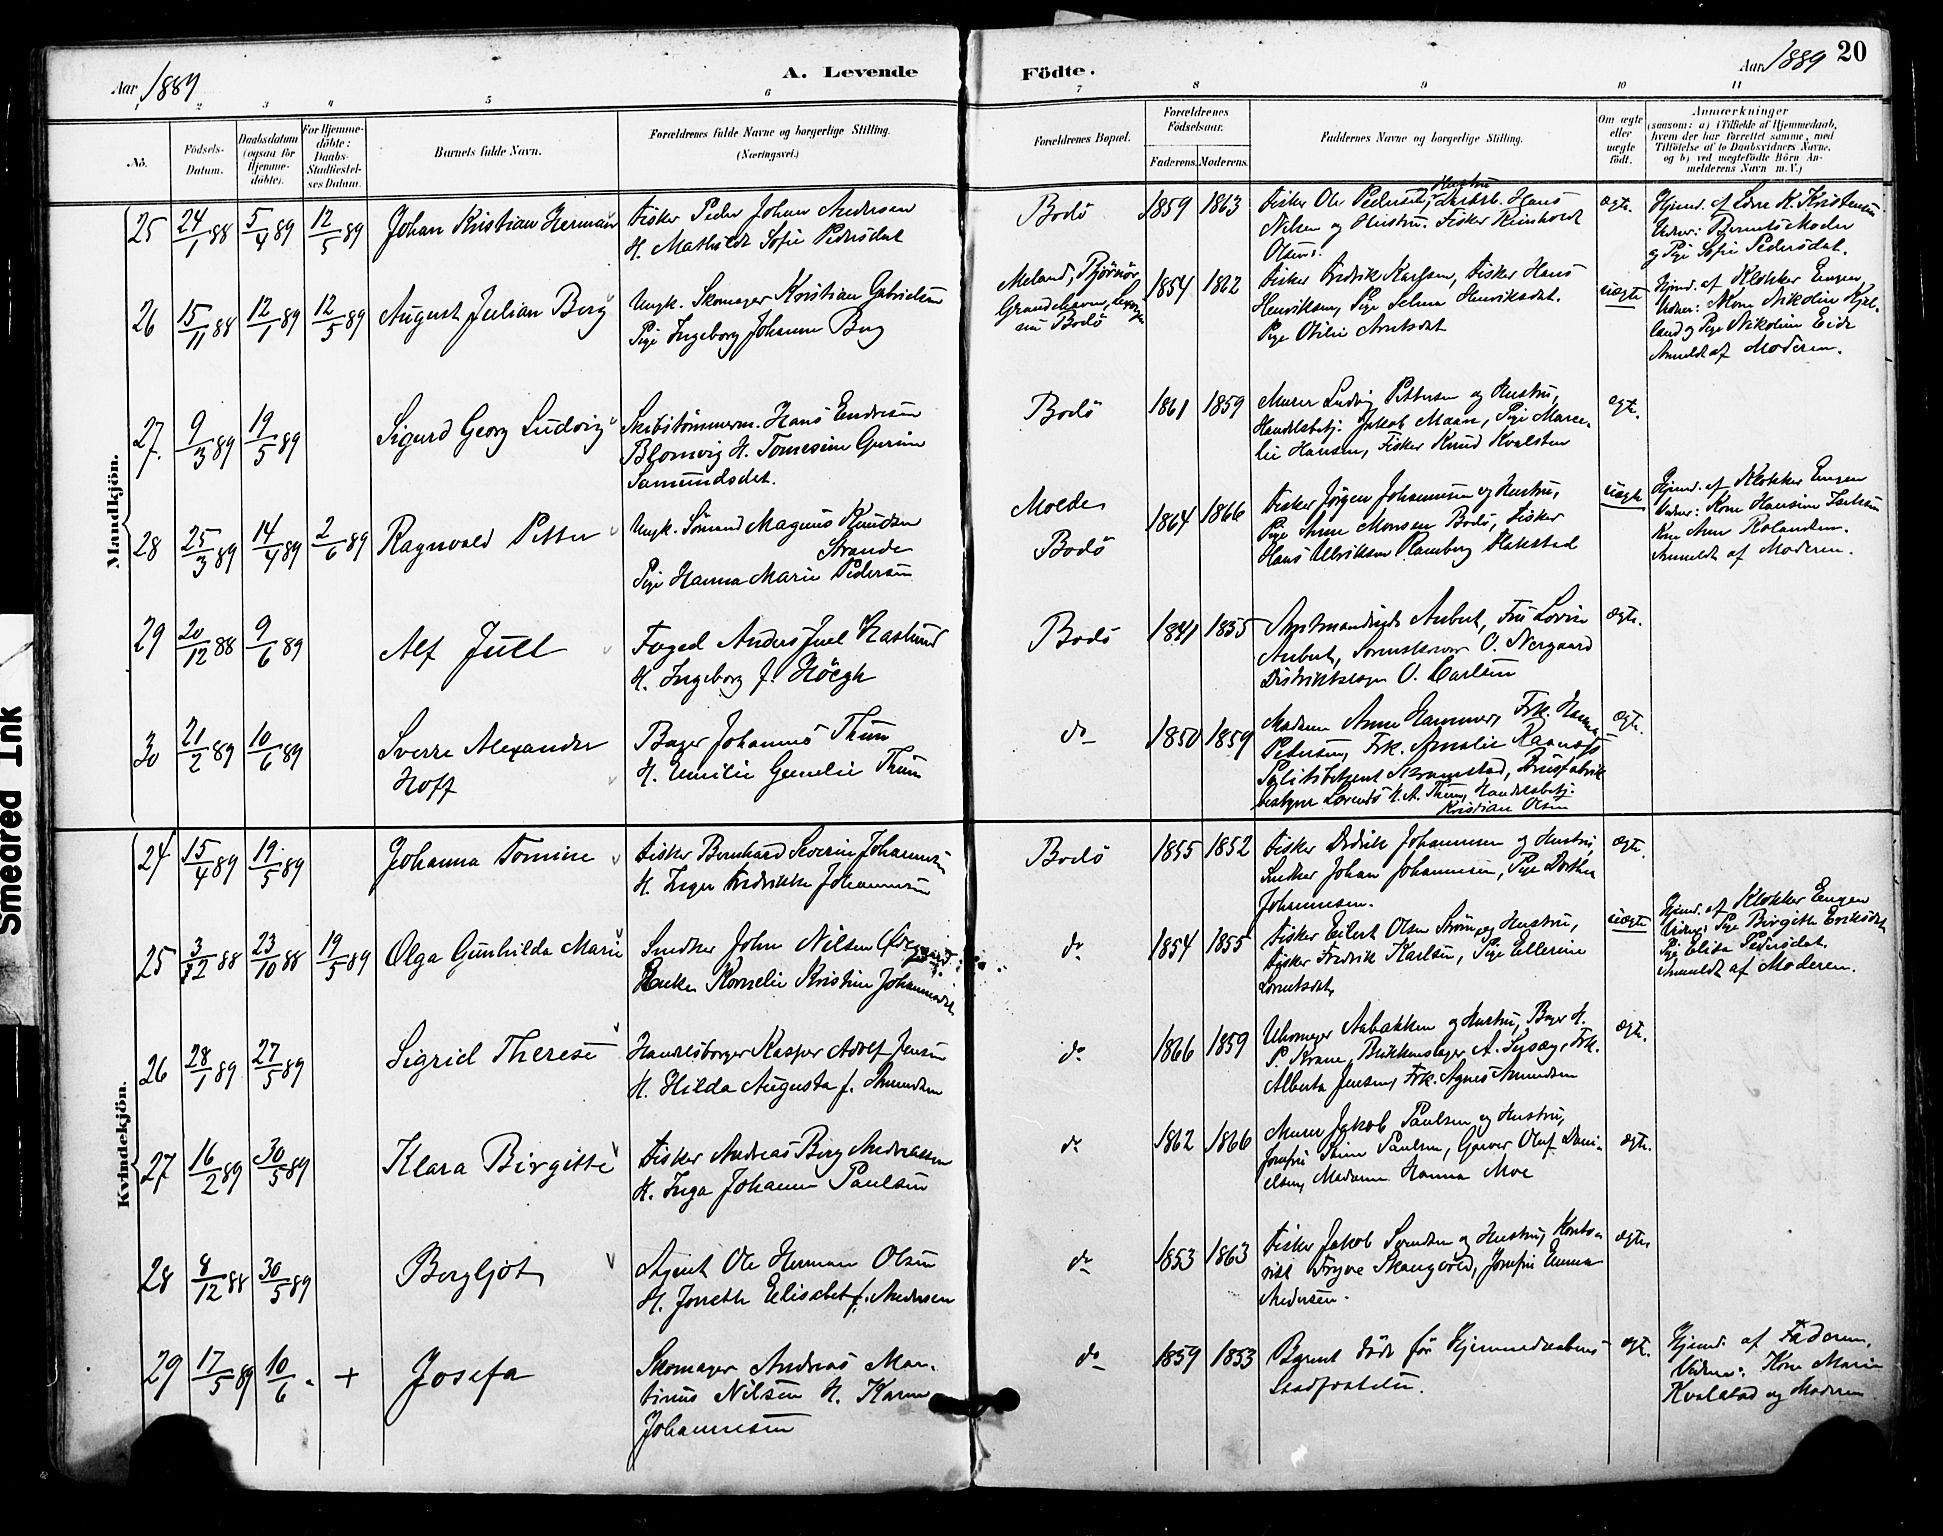 Aar 1889
A. Levende
Födte.
Aar 1889
20
1 2 3 4 5 6 7 8 9 10 11
No.
Födsels-
Datum.
Daabsdatum
(ogsaa for
Hjemme-
döbte).
For Hjemme-
döbte:
Daabs-
Stadfæstel-
ses Datum.
Barnets fulde Navn.
Forældrenes fulde Navne og borgerlige Stilling.
(Næringsvei.)
Forældrenes Bopæl.
Forældrenes
Födselsaar.
Faderens.
Moderens.
Faddernes Navne og borgerlige Stilling.
Om ægte
eller
uægte
födt.
Anmærkninger
(saasom: a) i Tilfælde af Hjemmedaab,
hvem der har forrettet samme, med
Tilföielse af to Daabsvidners Navne,
og b) ved uægtefödte Börn An-
melderens Navn m.V.)
Mandkjön.
25 24/1 88 5/4 89 12/5 89 Johan Kristian Herman
Fisker Peder Johan Andersen
H. Mathilde Sofie Pedersdat
Bodö 1859 1863
Fisker Ole Pedersen, Hustru Hans
Nilsen og Hustru. Fisker Reinholdt
Olsen
ægte.
Hjemd. af K. Kristensen
Vidner: Barnets Moder
og Pige Sofie Pedersdat.
26 15/11 88 12/1 89 12/5 89 August Julian Berg
Ungk. Skomager Kristian Gabrielsen
Pige Ingeborg Johanne Berg
Meland, Bjørnör
Bodö
1854 1862
Fisker Fredrik Karlsen, Fisker Hans
Henriksen, Pige Selma Henriksdat.
Pige Otilie Arntsdat
uægte
Hjemd. af Klokker Engen
Vidner: Kone Nikoline Kjel-
land og Pige Nikoline Eide
Anmeldt af Moderen.
27. 9/3 89 19/5 89 Sigurd Georg Ludvig
Skibstömmerm. Hans Endresen
Blomvig H. Tomesine Gurine
Samundsdat.
Bodö 1861 1859
Murer Ludvig Pettersen og Hustru,
Handelsbetj: Jakob Maan, Pige Marce-
lie Hansen, Fisker Knud Kvalsten
ægte.
28 25/3 89 14/4 89 2/6 89 Ragnvald Petter
Ungk. Sömand Magnus Knudsen
Strande
Pige Hanna Marie Pedersen
Molde
Bodö
1864 1866
Fisker Jörgen Johannesen og Hustru,
Pige Anne Monsen Bodö, Fisker
Hans Ulriksen Ramberg Flakstad
uægte
Hjemd. af Klokker Engen
Vidner: Kone Hansine
Kone Anne Rolandsen.
Anmeldt af Moderen.
29 20/12 88 9/6 89 Alf Juell
Foged Anders Juel Haslund
H. Ingeborg f. Höegh
Bodö 1841 1855
Amtmandinde Aubert, Fru Lovise
Aubert, Sorenskriver O. Nergaard
Distriktslæge O. Carlsen
ægte.
30 21/2 89 10/6 89 Sverre Alexander
Hoff
Bager Johannes Thun
H. Emilie Gemelie Thun
do 1850 1859
Madam Anne Hammer, Frk. Hanna
Pedersen, Frk. Amalie Raanaes
Politibetjent Skramstad, Brusfabrik
bestyrer Lorents H. A. Thun, Handelsbetj.
Kristian Olsen
ægte.
Kvindekjön.
24 15/4 89 19/5 89 Johanna Tomine
Fisker Bernhard Severin Johannesen
H. Inger Fredrikke Johannesen
Bodö 1855 1852
Fisker Didrik Johannesen og Hustru,
Snedker Johan Johannesen, Pige Dorthea
Johannesen.
ægte.
25 3/12 88 23/10 88 19/5 89 Olga Gunhilda Marie
Snedker John Nilsen Ödegaard
Enke Kornelie Kristine Johannesdat
do 1854 1855
Fisker Eilert Olsen Ström og Hustru,
Fisker Fredrik Karlsen, Pige Ellerine
Lorentsdat,
uægte
Hjemd. af Klokker Engen
Vidner: Pige Birgitte Eriksdat
Pige Elisa Pedersdat.
Anmeldt af Moderen.
26 28/1 89 27/5 89 Sigrid Therese
Handelsborger Kasper Adolf Jensen
H. Hilda Augusta f. Amundsen
do 1866 1859
Uhrmager Aabakken og Hustru, Bager H.
P. Krane, Blikkenslager A. Frk.
Alberta Jensen, Frk. Agnes Amundsen
ægte.
27 16/2 89 30/5 89 Klara Birgitte
Fisker Andreas Berg Andreassen
H. Inga Johanne Paulsen
do 1862 1866
Murer Jakob Paulsen og Hustru,
Josefine Paulsen, Garver Oluf Dani-
elsen, Madame Hanna Moe
ægte.
28 8/12 88 30/5 89 Bergljot
Agent Ole Herman Olsen
H. Jonette Elisabet f. Andersen
do 1853 1863
Fisker Jakob Svendsen og Hustru, Konto-
rist Trygve Skaugvold, Josefine Emma
Andersen.
ægte
29 17/5 89 10/6 „ + Josefa
Skomager Andreas Mar-
tinus Nilsen H. Karen
Johannesen
do 1859 1853
Barnet döde för Hjemmedaabens
Stadfæstelse.
ægt.
Hjemd. af Faderen.
Vidner: Kone Marie
Kvalstad og Moderen
Smeared Ink